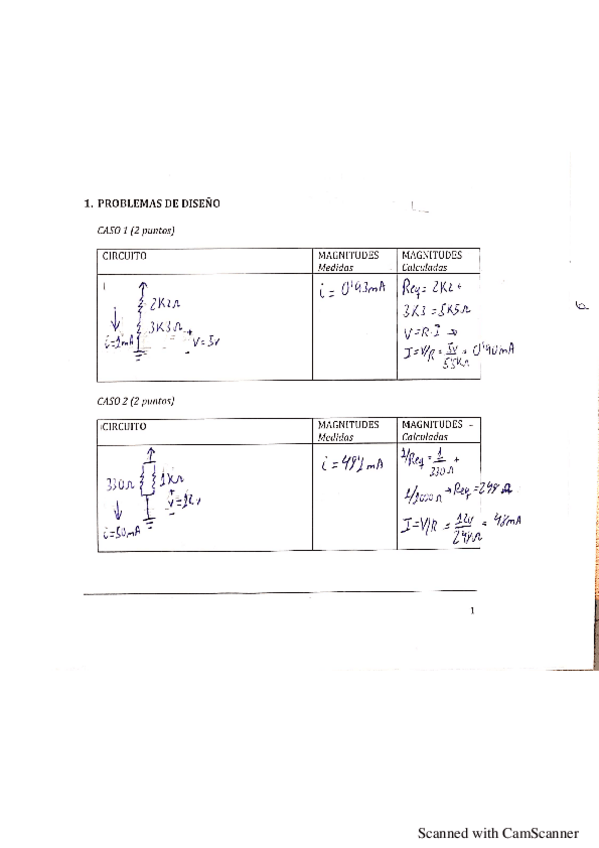 1. PROBLEMAS DE DISEÑO
CASO 1 (2 puntos)
CIRCUITO
MAGNITUDES
Medidas
MAGNITUDES
Calculadas
2K2Ω
3K3Ω
i=1mA
V=5v
i = 0'93mA
Req = 2K2 +
3K3 = 5K5Ω
V=R·I ⇒
I=V/R = 5v/55KΩ = 0'90mA
CASO 2 (2 puntos)
CIRCUITO
MAGNITUDES
Medidas
MAGNITUDES
Calculadas
330Ω
1KΩ
V=12v
i=50mA
i = 49'1mA
1/Req = 1/330Ω +
1/1000Ω → Req = 248Ω
I=V/R = 12v/248Ω = 48mA
1
6
Scanned with CamScanner